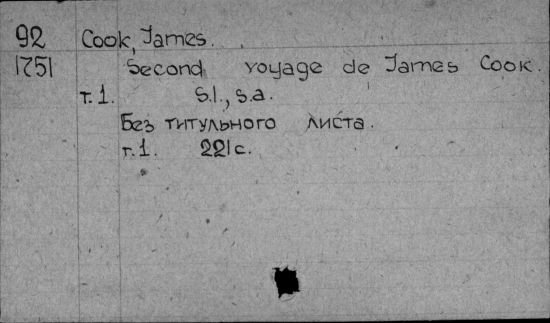 92 Cook, James.
1751 Second voyage de James Cook.
т.1. S.l., s.a.
Без титульного листа.
т.1. 221с.